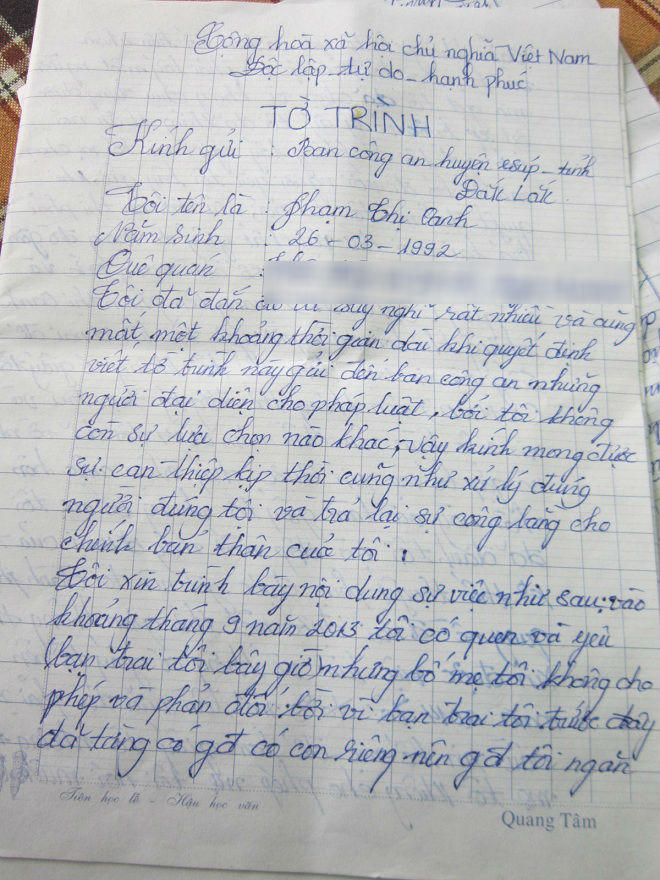 Cộng hoà xã hội chủ nghĩa Việt Nam
Độc lập - tự do - hạnh phúc
TỜ TRÌNH
Kính gửi : Ban công an huyện easúp - tỉnh
Đăk Lăk.
Tôi tên là : Phạm Thị Oanh
Năm sinh : 26 - 03 - 1992
Quê quán :
Tôi đã đắn đo suy nghĩ rất nhiều và cũng
mất một khoảng thời gian dài khi quyết định
viết tờ trình này gửi đến ban công an những
người đại diên cho pháp luật, bởi tôi không
còn sự lựa chọn nào khác, vậy kính mong được
sự can thiệp kịp thời cũng như xử lý đúng
người đúng tội và trả lại sự công bằng cho
chính bản thân của tôi.
Tôi xin trình bày nội dung sự việc như sau: vào
khoảng tháng 9 năm 2013 tôi có quen và yêu
(bạn trai tôi bây giờ) nhưng bố mẹ tôi không cho
phép và phản đối. Bởi vì bạn trai tôi trước đây
đã từng có gđ có con riêng nên gđ tôi ngăn
Tiên học lễ - Hậu học văn
Quang Tâm